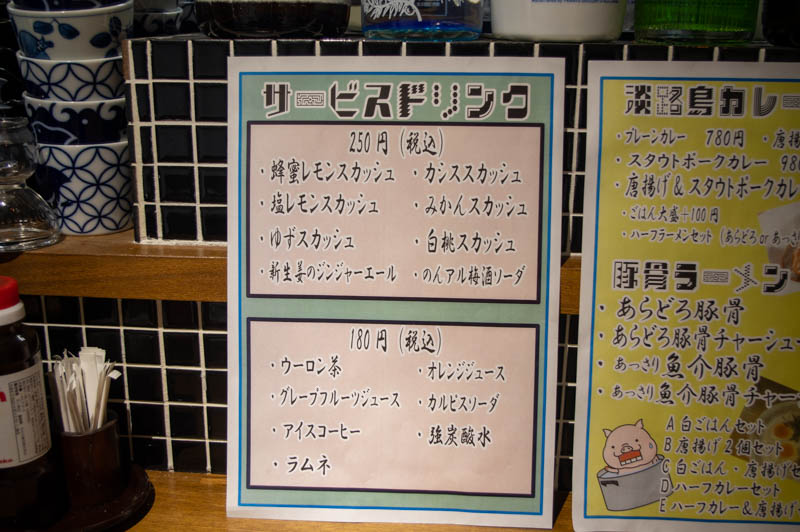 サービスドリンク
250円(税込)
・蜂蜜レモンスカッシュ ・カシススカッシュ
・塩レモンスカッシュ ・みかんスカッシュ
・ゆずスカッシュ ・白桃スカッシュ
・新生姜のジンジャーエール ・のんアル梅酒ソーダ
180円(税込)
・ウーロン茶 ・オレンジジュース
・グレープフルーツジュース ・カルピスソーダ
・アイスコーヒー ・強炭酸水
・ラムネ
淡路島カレー
・プレーンカレー 780円 ・唐揚
・スタウトポークカレー 98
・唐揚げ&スタウトポークカレ
・ごはん大盛+100円
・ハーフラーメンセット(あらどろ or あっさ
豚骨ラーメン
・あらどろ豚骨
・あらどろ豚骨チャーシュー
・あっさり魚介豚骨
・あっさり魚介豚骨チャー
A 白ごはんセット
B 唐揚げ2個セット
C 白ごはん・唐揚げセ
D ハーフカレーセット
E ハーフカレー&唐揚げ